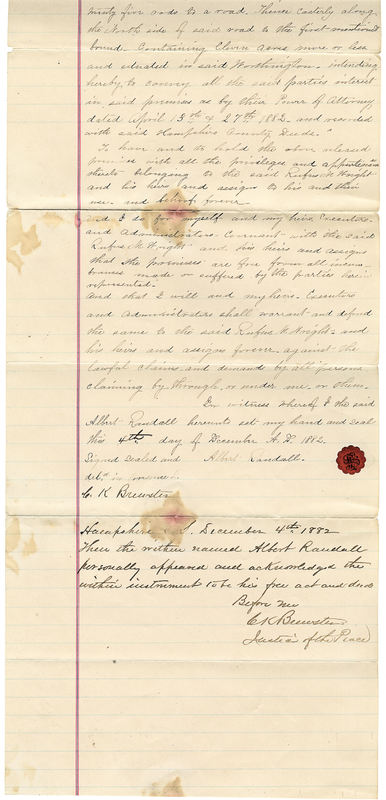 ninty five rods to a road. Thence Easterly along
the North side of said road to the first mentioned
bound. Containing Eleven acres more or less
and situated in said Worthington. intending
hereby to convey all the said parties interest
in said premises as by their Power of Attorney
dated April 15th & 27th 1882. and recorded
with said Hampshire County Deeds."
To have and to hold the above released
premises with all the privileges and appurtenances
thereto belonging to the said Rufus M. Wright
and his heirs and assigns to his and their
use and behoof forever.
And I do for myself and my heirs Executors
and Administrators. Covenant with the said
Rufus M. Wright and his heirs and assigns
that the premises are free from all incum
brances made or suffered by the parties herein
represented.
And that I will and my heirs. Executors
and Administrators shall warrant and defend
the same to the said Rufus M. Wright. and
his heirs and assigns forever against the
lawful claims and demands by all persons
claiming by through or under me or them.
In witness whereof I the said
Albert Randall hereunto set my hand and seal
this 4th day of December A. D. 1882.
Signed Sealed and Albert Randall.
deld in presence.
C. K Brewster
Hampshire S.S. December 4th 1882
Then the within named Albert Randall
personally appeared and acknowledged the
within instrument to be his free act and deed
Before me
C K Brewster
Justice of the Peace